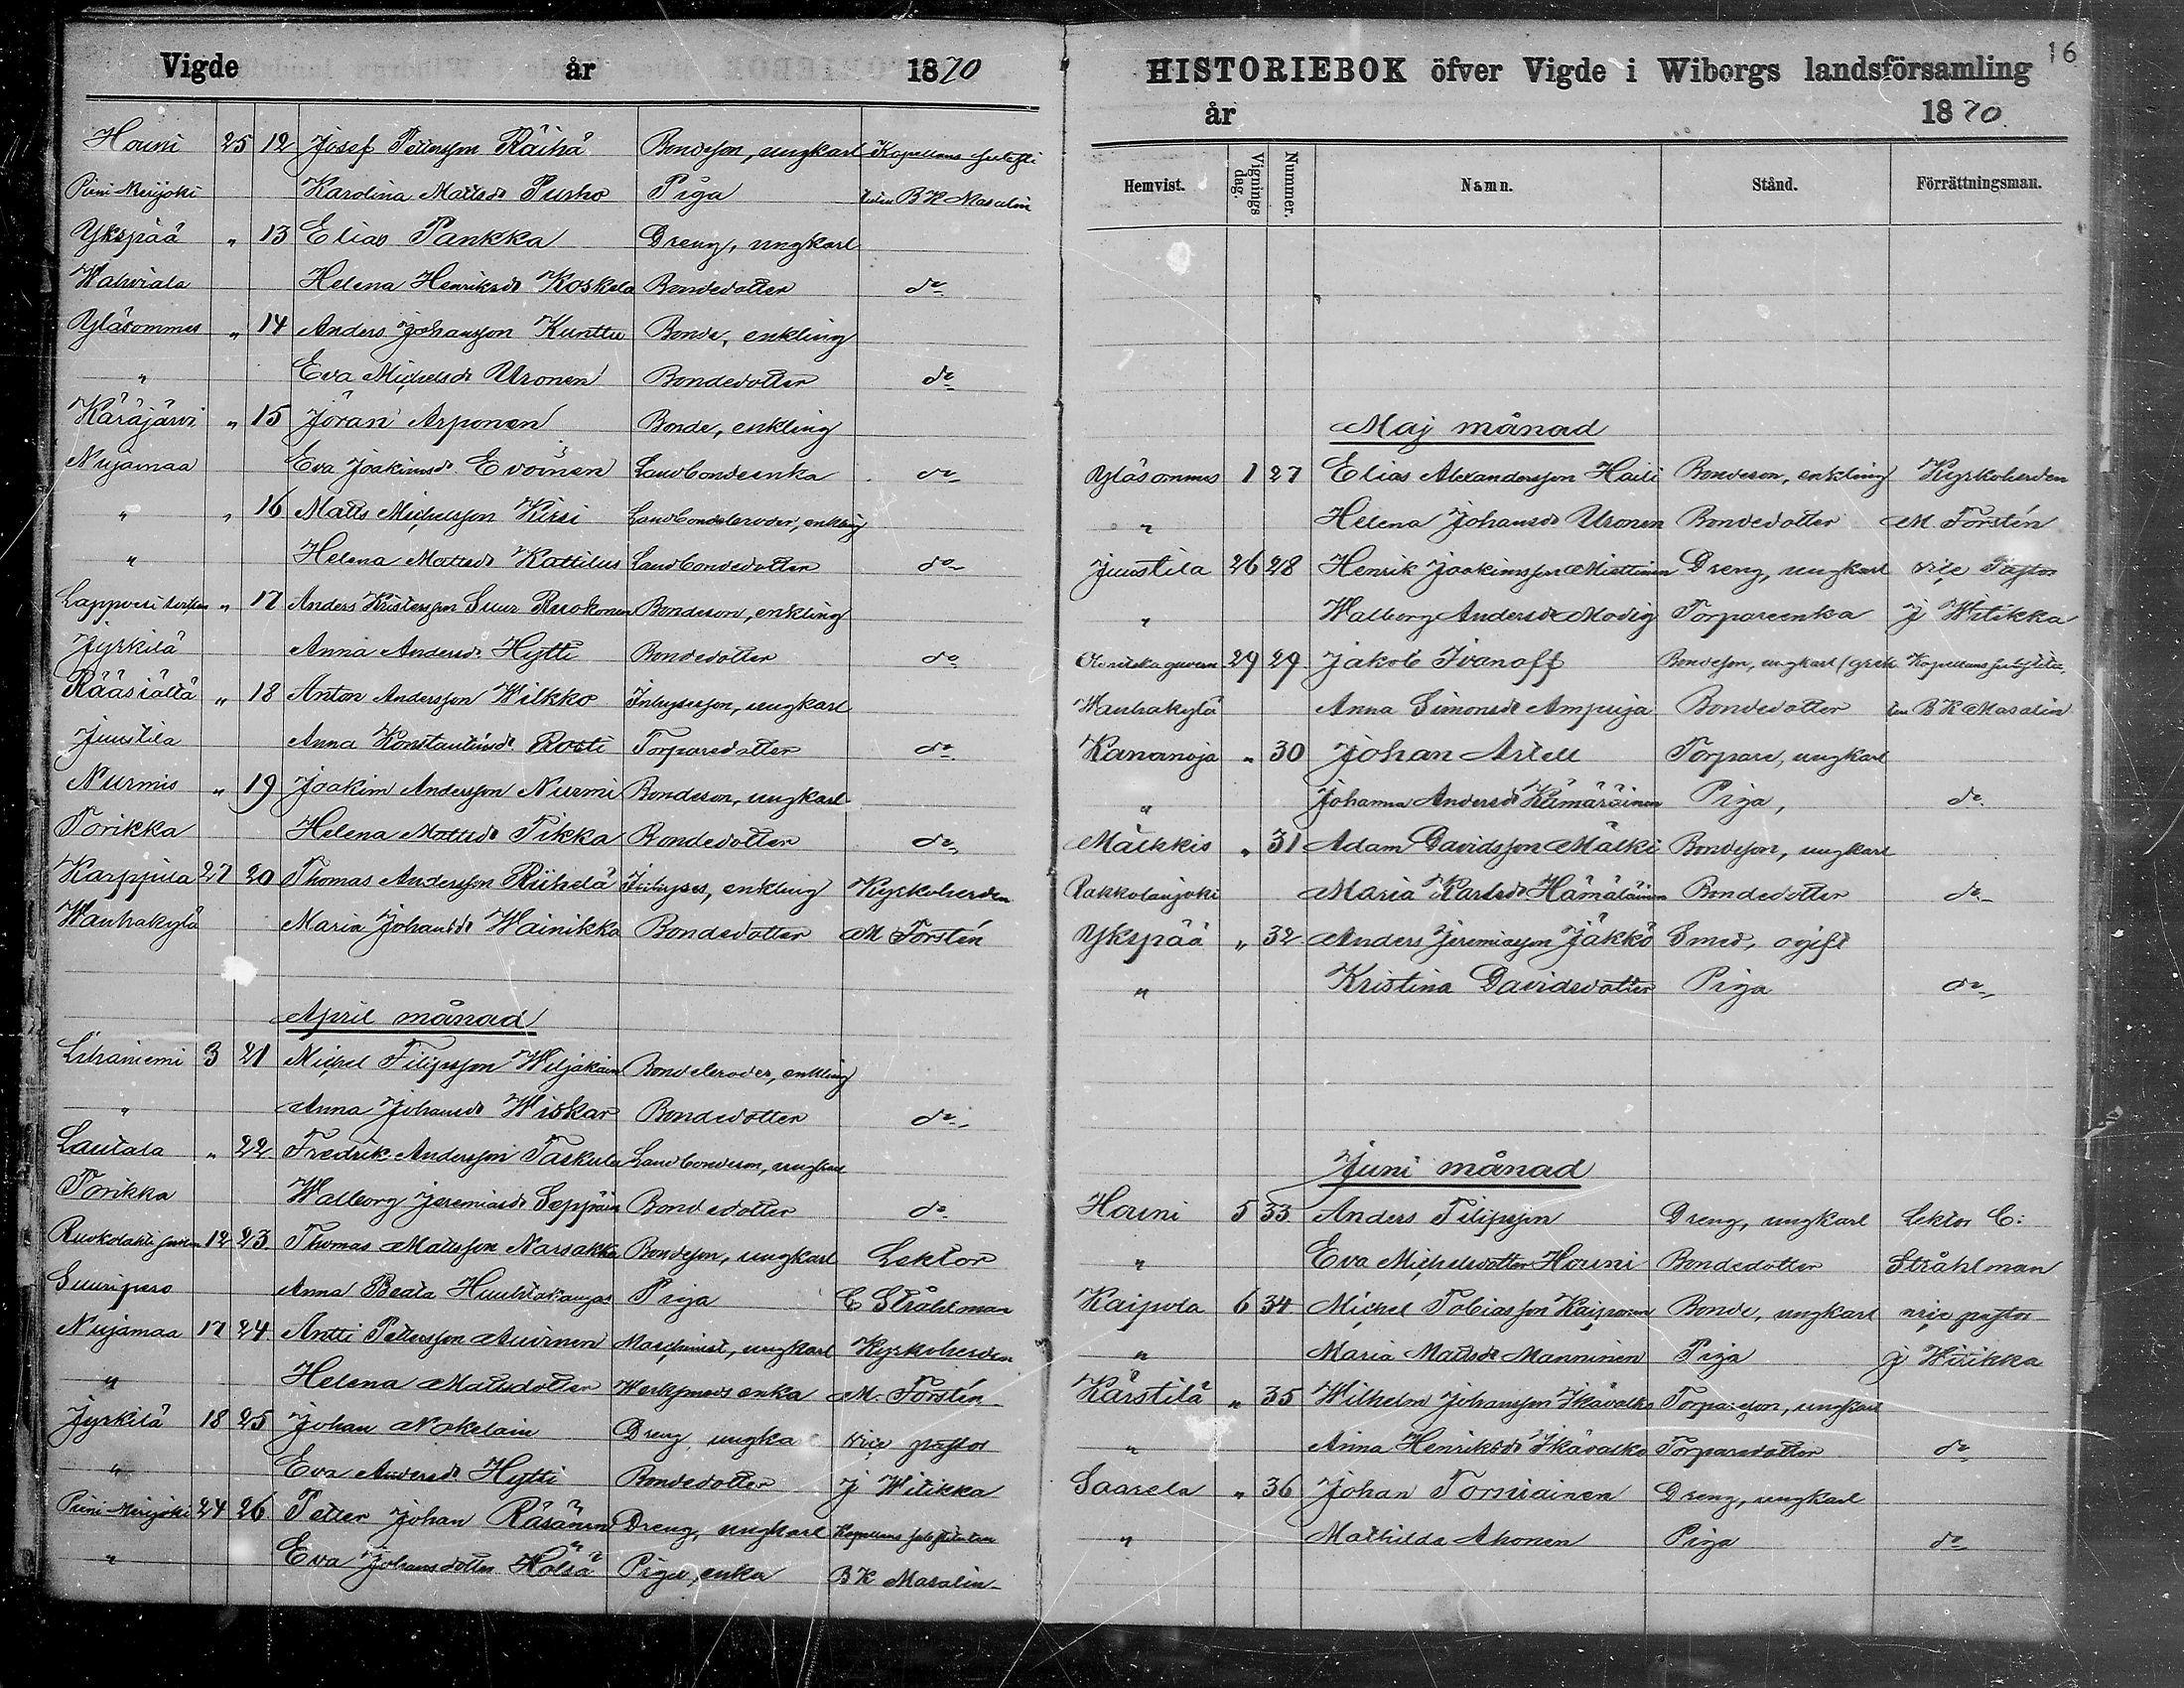 Vigde år 1870
Houni 25 12 Josef Pettersson Räihä Bondeson, ungkarl Kapellans substi
Pieni Merijoki Karolina Mattsdr Pusho Piga tuten B K Masalin
Ykspää " 13 Elias Pankka Dreng, ungkarl
Wahviala Helena Henriksdr Koskela Bondedotter do
Yläsommes " 14 Anders Johansson Kunttu Bonde, enkling
" Eva Michelsdr Uronen Bondedotter do
Käräjärvi " 15 Jöran Arponen Bonde, enkling
Nujamaa Eva Joakimsdr Evoinen Landbondeenka do
" " 16 Matts Michelsson Kirsi Landbondebroder, enkling
" Helena Mattsdr Kattilus Landbondedotter do
Lappvesi " 17 Anders Kristersson Suur Ruokonen Bondeson, enkling
Jyrkilä Anna Andersdr Hytti Bondedotter do
Rääsiältä " 18 Anton Andersson Wilkko Inhysesson, ungkarl
Juustila Anna Konstantinsdr Rosti Torparedotter do
Nurmis " 19 Joakim Andersson Nurmi Bondeson, ungkarl
Torikka Helena Mattsdr Tikka Bondedotter do
Karppila 27 20 Thomas Andersson Riihelä Inhyses, enkling Kyrkoherden
Wanhakylä Maria Johansdr Wainikka Bondedotter M Forstén
April månad
Lihaniemi 3 21 Michel Filipsson Wiljakain Bondebroder, enkling
" Anna Johansdr Wiskar Bondedotter do
Lautala " 22 Fredrik Andersson Taskula Landbondeson, ungkarl
Torikka Walborg Jeremiasdr Seppäin Bondedotter do
Ruokolahti socken 12 23 Thomas Matsson Narsakka Bondeson, ungkarl Lektor
Suuripero Anna Beata Huuhtakangas Piga C Stråhlman
Nujamaa 17 24 Antti Pettersson Auvinen Maschinist, ungkarl Kyrkoherden
" Helena Mattsdotter enka M. Forstén
Jyrkilä 18 25 Johan Nokelain Dreng, ungka vice pastor
" Eva Andersdr Hytti Bondedotter J Witikka
Pieni Merijoki 24 26 Petter Johan Räsänen Dreng, ungkarl Kapellans substituten
" Eva Johansdotter Hölsä Piga, enka B K Masalin
16
HISTORIEBOK öfver Vigde i Wiborgs landsförsamling
år 1870
Hemvist. Vignings dag. Nummer. Namn. Stånd. Förrättningsman.
Maj månad
Yläsommes 1 27 Elias Alexandersson Haili Bondeson, enkling Kyrkoherden
" Helena Johansdr Uronen Bondedotter M. Forstén
Juustila 26 28 Henrik Joakimsson Miettinen Dreng, ungkarl vice Pastor
" Walborg Andersdr Modig Torpareenka J Witikka
29 29. Jakob Ivanoff Bondeson, ungkarl (grek Kapellans substitu
Wanhakylä Anna Simonsdr Ampuja Bondedotter ten B K Masalin
Kananoja " 30 Johan Artell Torpare, ungkarl
" Johanna Andersdr Kämäräinen Piga, do.
Mälkkis " 31 Adam Davidsson Mälki Bondeson, ungkarl
Rakkolanjoki Maria Karlsdr Hämäläinen Bondedotter do
Ykspää " 32 Anders Jeremiasson Jäkkö Smed, ogift
" Kristina Davidsdotter Piga do
Juni månad
Houni 5 33 Anders Filipsson Dreng, ungkarl Lektor C:
" Eva Michelsdotter Houni Bondedotter Stråhlman
Kaipola 6 34 Michel Tobiasson Kaiponen Bonde, ungkarl vice pastor
" Maria Mattsdr Manninen Piga J Witikka
Kärstilä " 35 Wilhelm Johansson Ikävalko Torpareson, ungkarl
" Anna Henriksdr Ikävalko Torparedotter do
Saarela " 36 Johan Torniainen Dreng, ungkarl
" Mathilda Ahonen Piga do